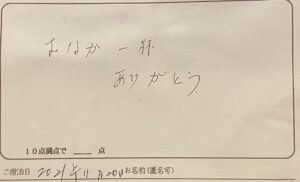 おなか一杯
ありがとう
10点満点で 点
ご宿泊日 2021年11月20日 お名前(匿名可)